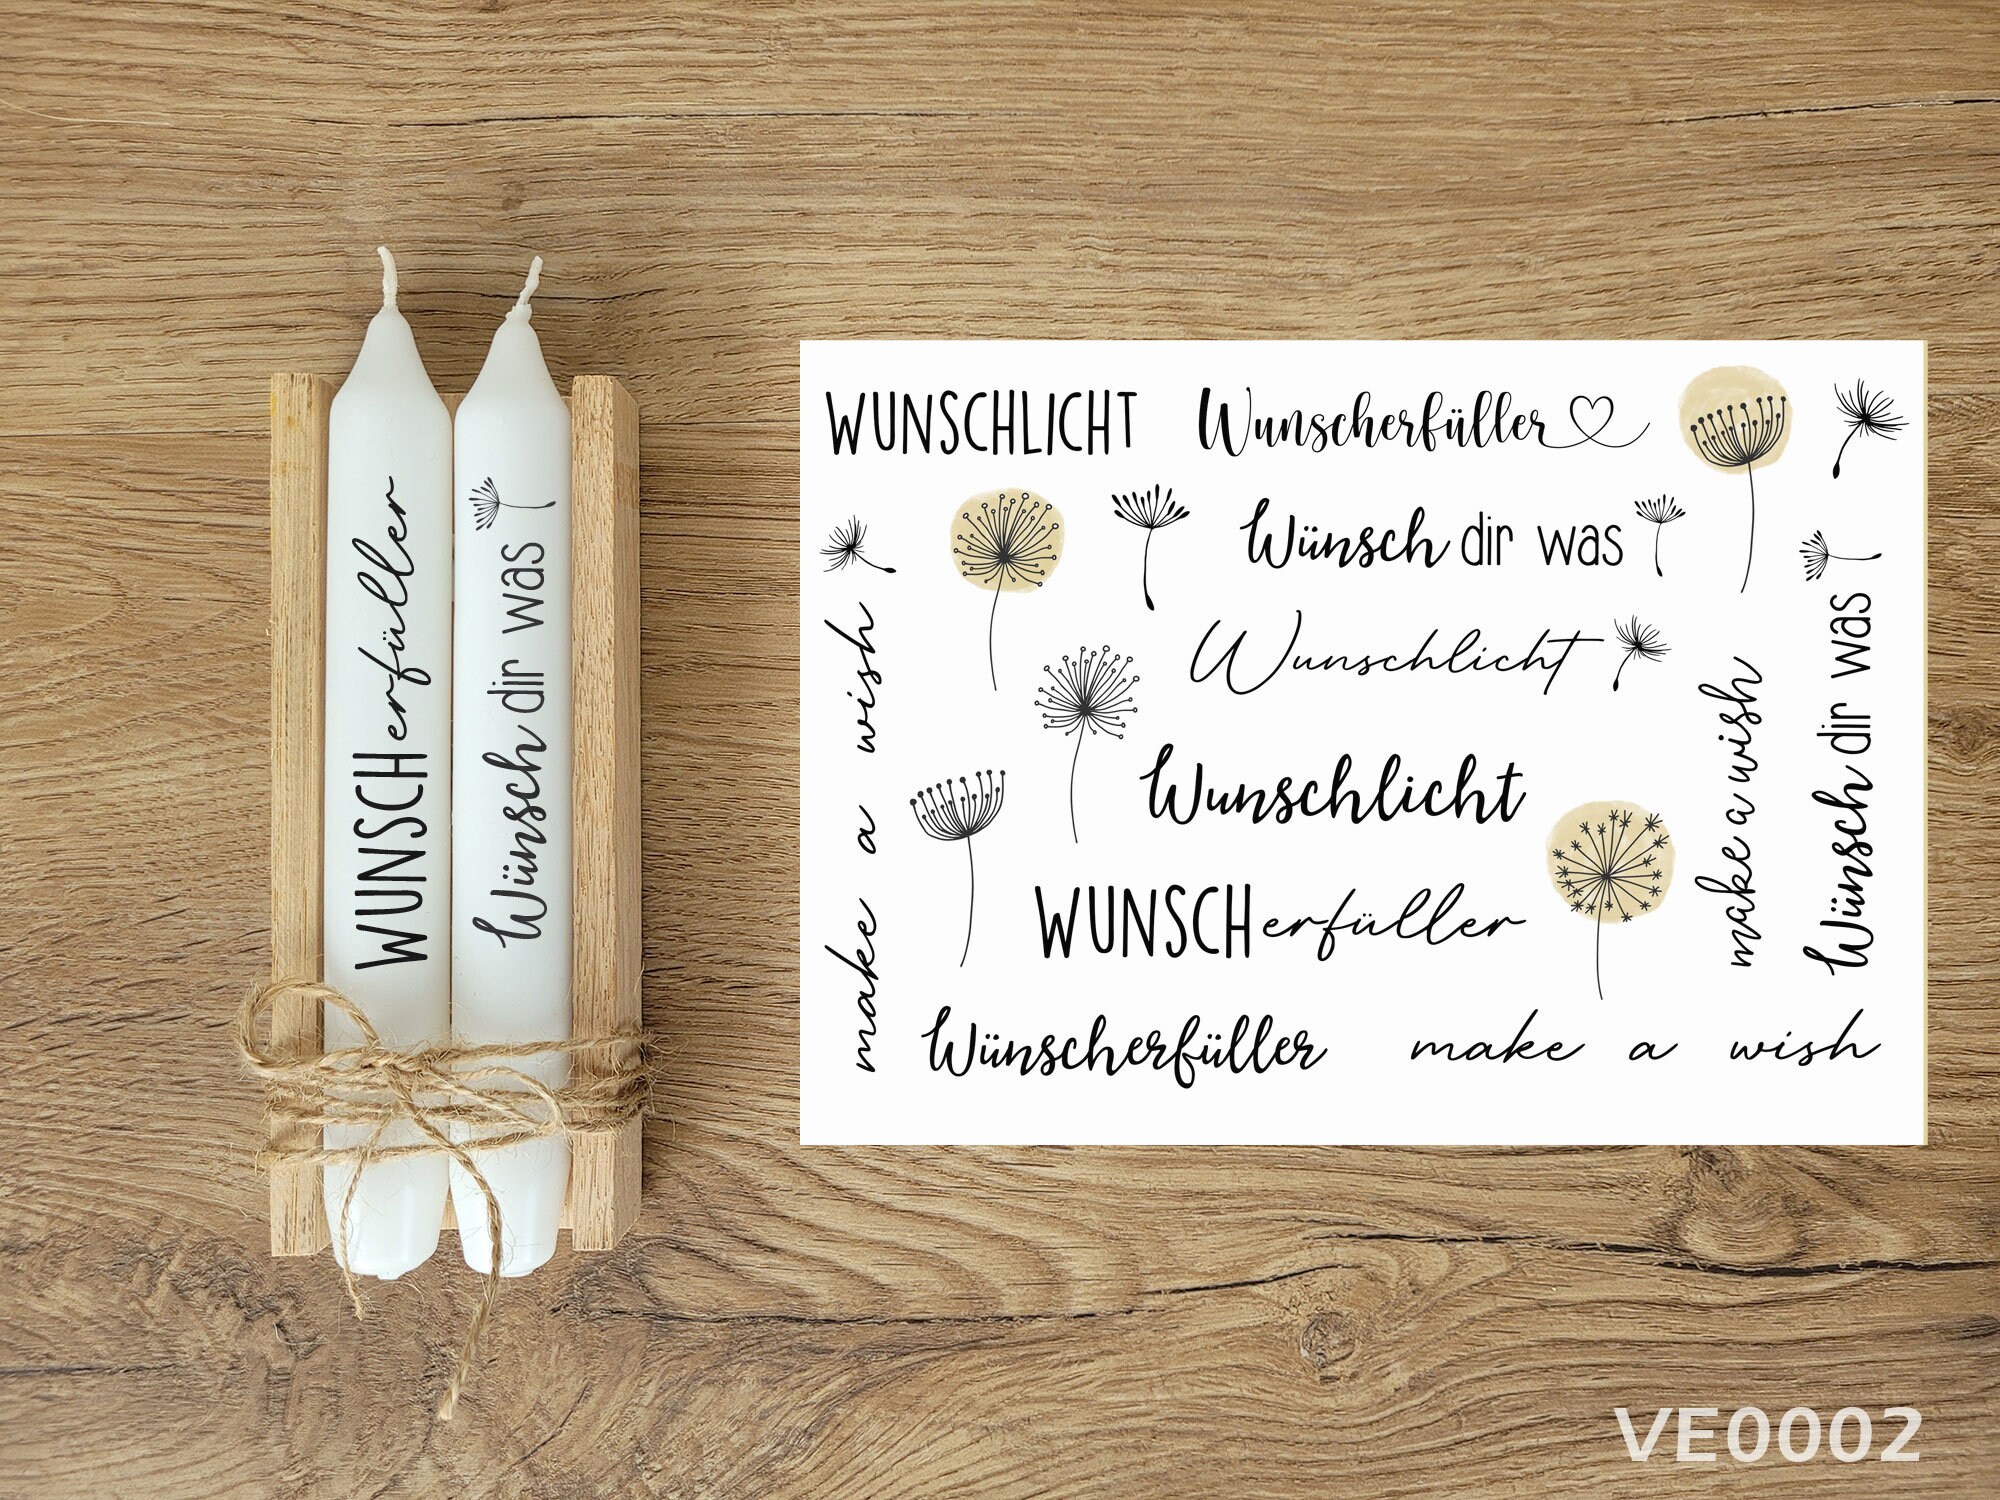 WUNSCHerfüller
Wünsch dir was
WUNSCHLICHT
Wunscherfüller
Wünsch dir was
Wunschlicht
Wunschlicht
WUNSCHerfüller
Wünscherfüller
make a wish
make a wish
make a wish
Wünsch dir was
VE0002